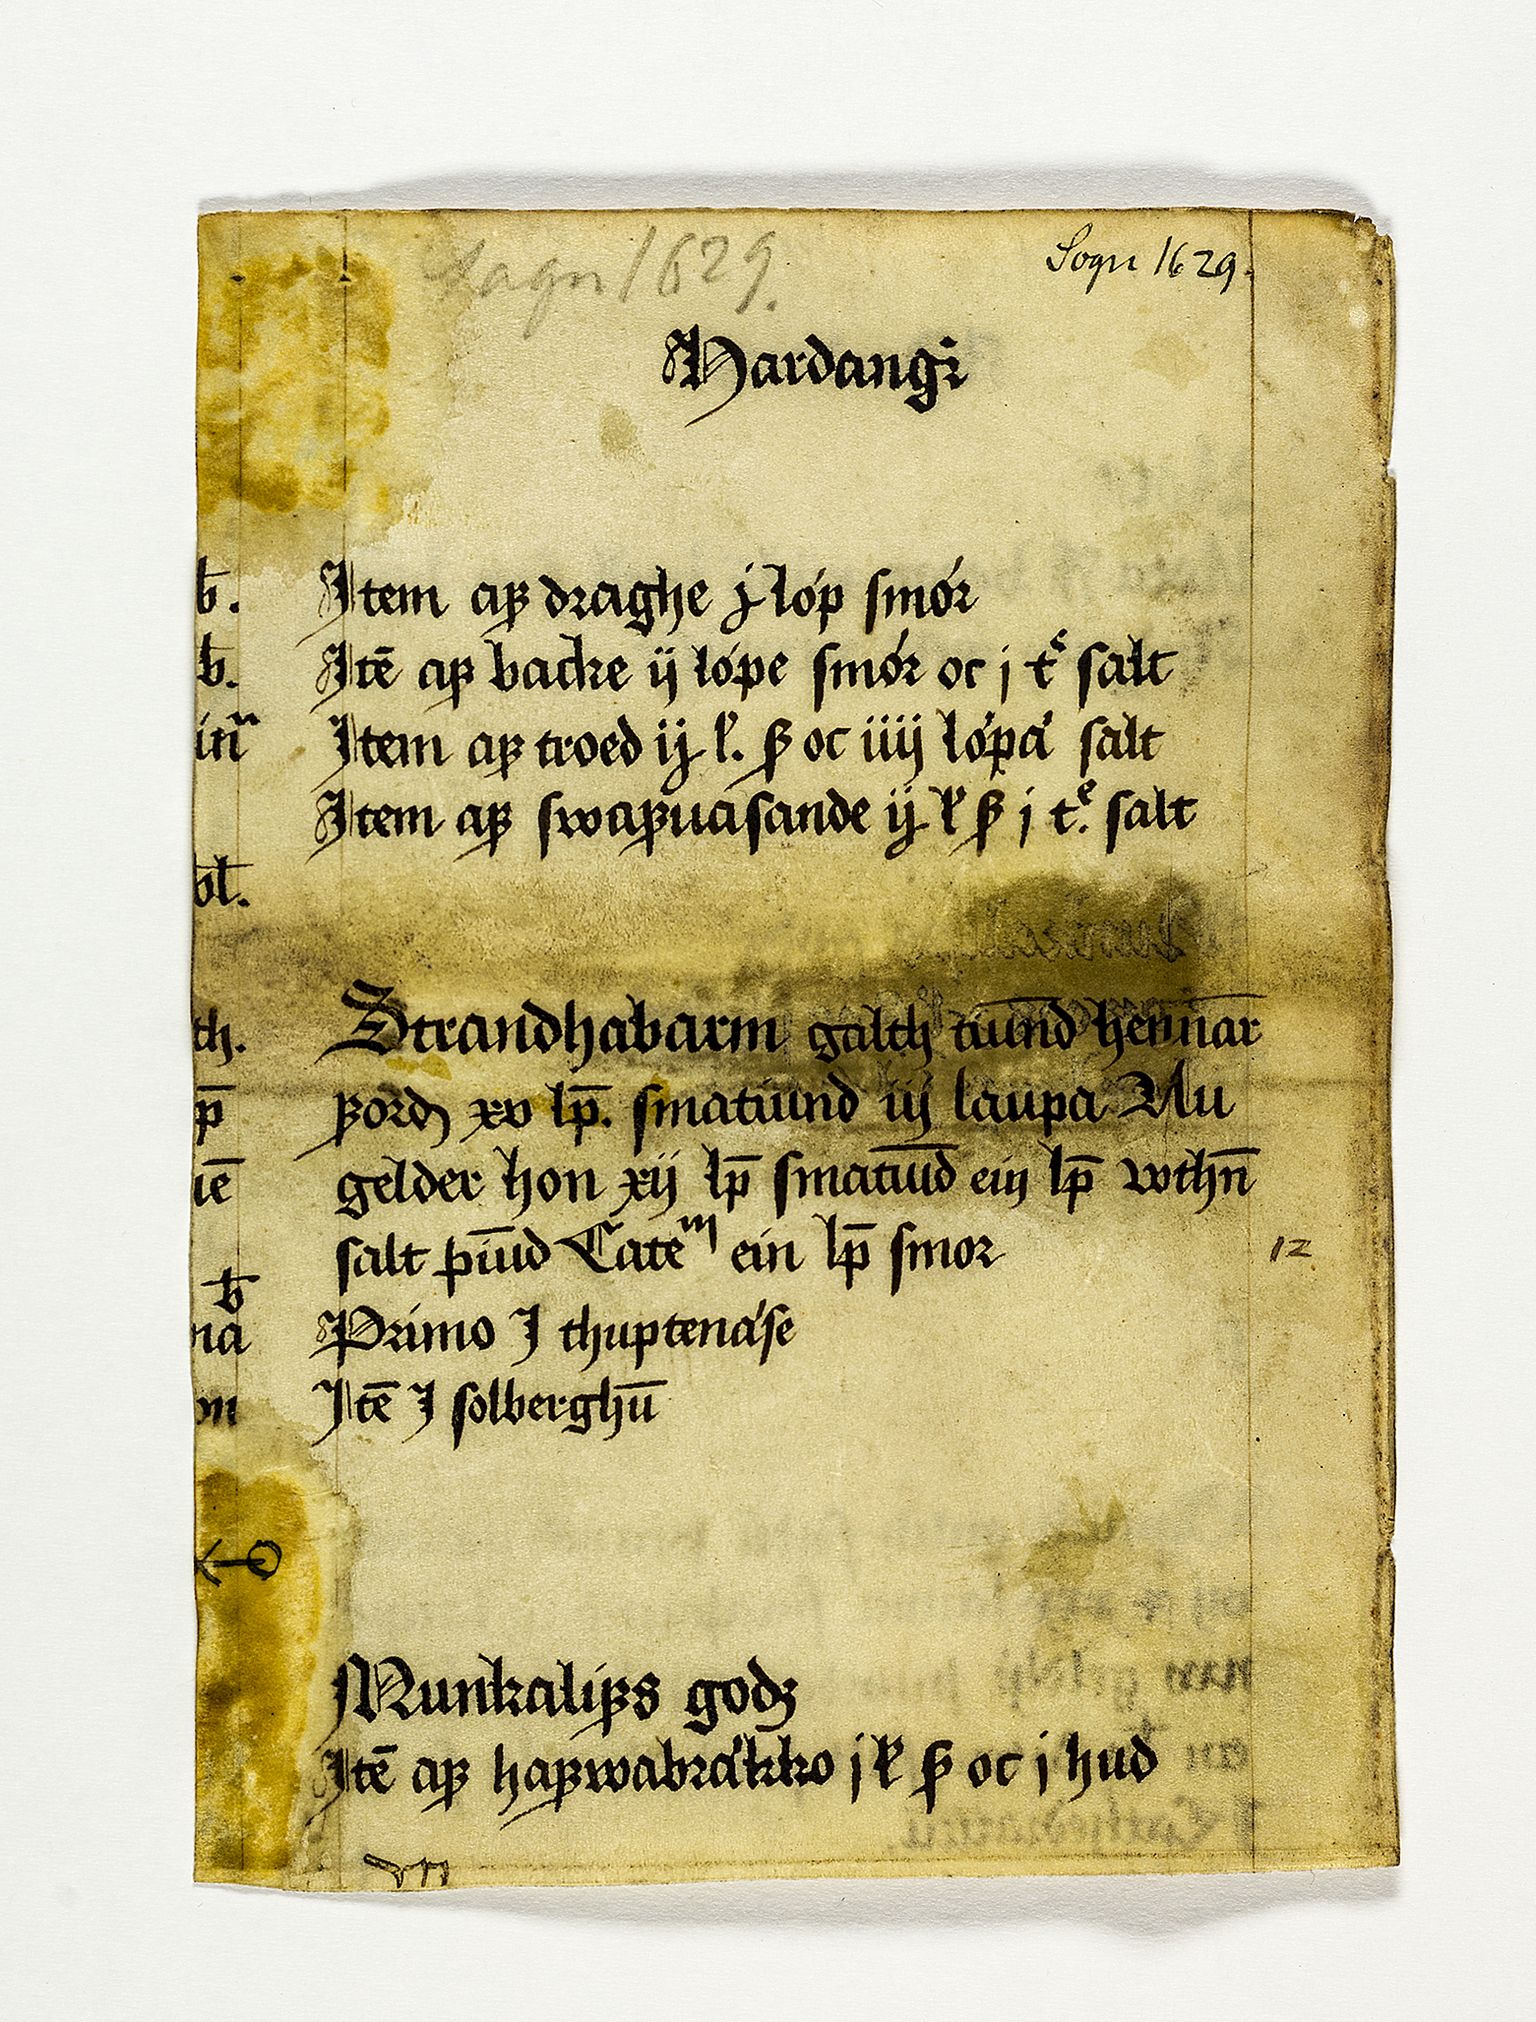 Sogn 1629.
Sogn 1629.
Hardangr
b.
Item aꝼ draghe j lóp smór
b.
Itē aꝼ backe ij lópe smór oc j tᵉ salt
in̄
Item aꝼ troed ij l. ꝼ oc iiij lópa salt
Item aꝼ swaꝼuasande ij l ꝼ j tᵉ. salt
bl.
th.
Strandhabarm galth tiund hennar
p̄
ꝼord xv lp̄. smatiund iij laupa Nu
iē
gelder hon xij lp̄ smatiūd ein lp̄ wthn̄
salt þiūd Cateᵐ ein lp̄ smor
12
b
na
Primo J thuptenáse
om
Itē J solberghū
Munkaliꝼs godz
Itē aꝼ haꝼwabrákko j l ꝼ oc j hud